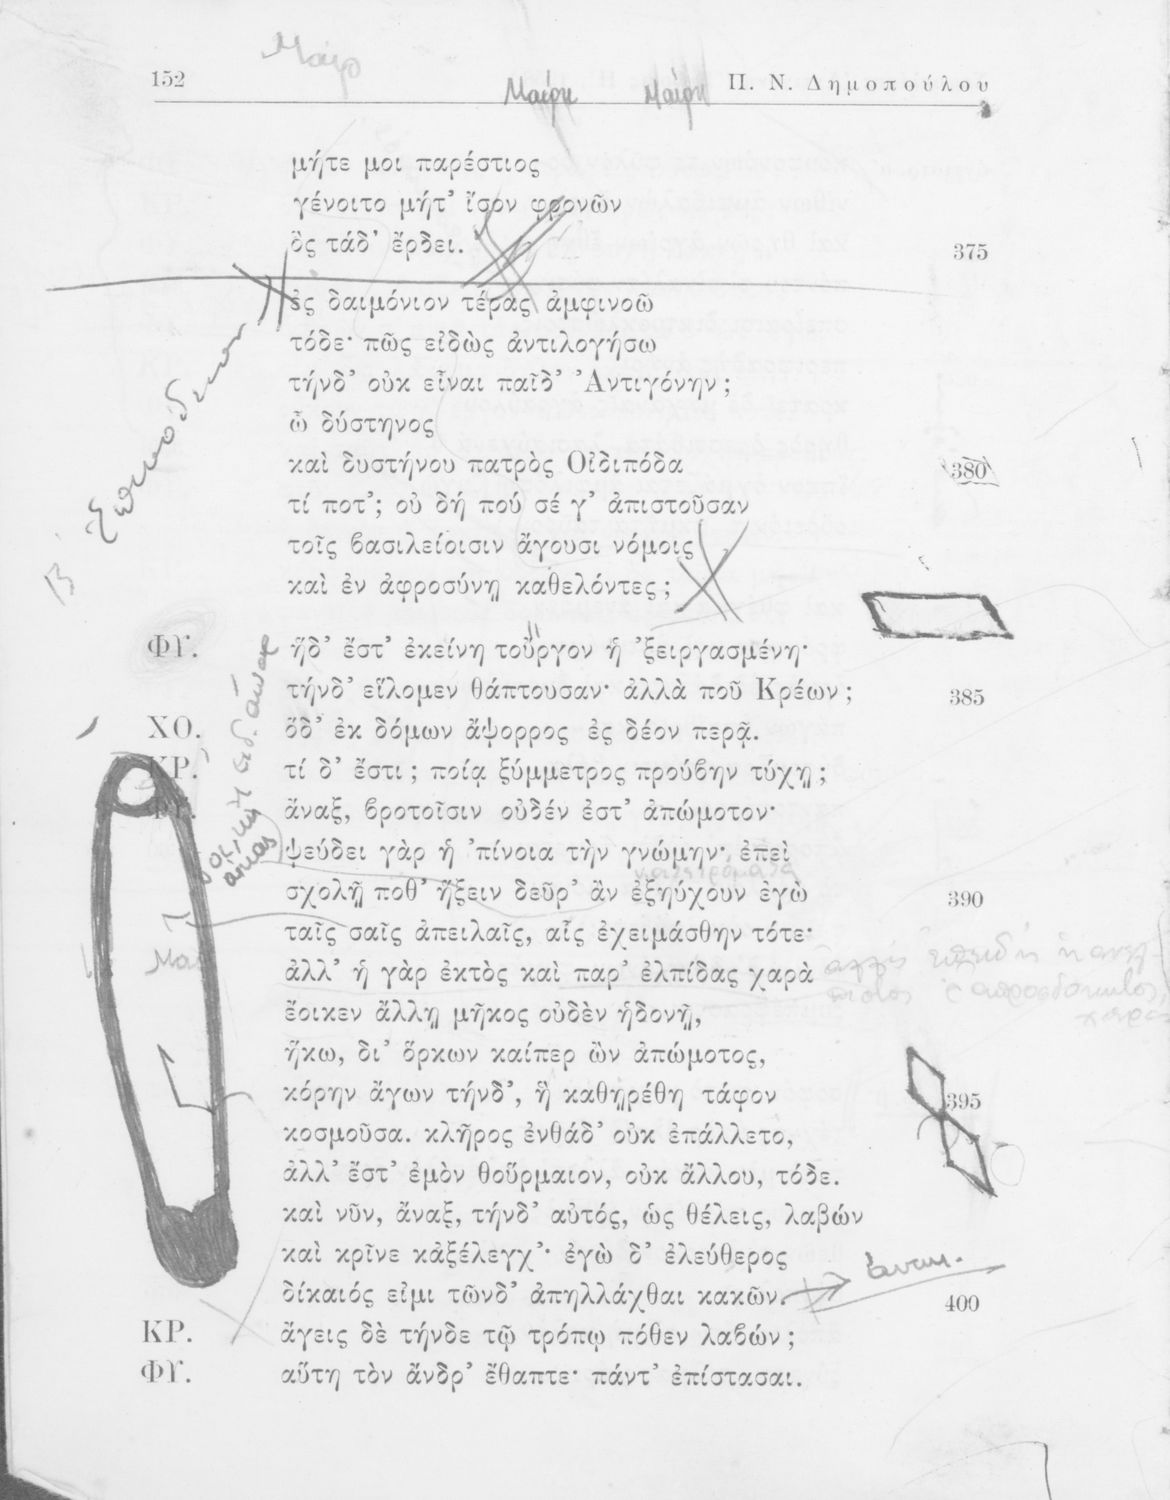 Μαίρ
152 Μαίρη Μαίρη Π. Ν. Δημοπούλου
μήτε μοι παρέστιος
γένοιτο μήτ’ ἴσον φρονῶν
ὃς τάδ’ ἔρδει. 375
ἐς δαιμόνιον τέρας ἀμφινοῶ
τόδε· πῶς εἰδὼς ἀντιλογήσω
τήνδ’ οὐκ εἶναι παῖδ’ Ἀντιγόνην;
ὦ δύστηνος
καὶ δυστήνου πατρὸς Οἰδιπόδα 380
τί ποτ’; οὐ δή πού σέ γ’ ἀπιστοῦσαν
τοῖς βασιλείοισιν ἄγουσι νόμοις
καὶ ἐν ἀφροσύνῃ καθελόντες;
ΦΥ. ἥδ’ ἔστ’ ἐκείνη τοὖργον ἡ ’ξειργασμένη·
τήνδ’ εἵλομεν θάπτουσαν· ἀλλὰ ποῦ Κρέων; 385
ΧΟ. ὅδ’ ἐκ δόμων ἄψορρος ἐς δέον περᾷ.
ΚΡ. τί δ’ ἔστι; ποίᾳ ξύμμετρος προὔβην τύχῃ;
ΦΥ. ἄναξ, βροτοῖσιν οὐδέν ἐστ’ ἀπώμοτον·
ψεύδει γὰρ ἡ ’πίνοια τὴν γνώμην· ἐπεὶ
σχολῇ ποθ’ ἥξειν δεῦρ’ ἂν ἐξηύχουν ἐγὼ 390
ταῖς σαῖς ἀπειλαῖς, αἷς ἐχειμάσθην τότε·
ἀλλ’ ἡ γὰρ ἐκτὸς καὶ παρ’ ἐλπίδας χαρὰ
ἔοικεν ἄλλῃ μῆκος οὐδὲν ἡδονῇ,
ἥκω, δι’ ὅρκων καίπερ ὢν ἀπώμοτος,
κόρην ἄγων τήνδ’, ἣ καθῃρέθη τάφον 395
κοσμοῦσα. κλῆρος ἐνθάδ’ οὐκ ἐπάλλετο,
ἀλλ’ ἔστ’ ἐμὸν θοὔρμαιον, οὐκ ἄλλου, τόδε.
καὶ νῦν, ἄναξ, τήνδ’ αὐτός, ὡς θέλεις, λαβών
καὶ κρῖνε κἀξέλεγχ’· ἐγὼ δ’ ἐλεύθερος
δίκαιός εἰμι τῶνδ’ ἀπηλλάχθαι κακῶν. 400
ΚΡ. ἄγεις δὲ τήνδε τῷ τρόπῳ πόθεν λαβών;
ΦΥ. αὕτη τὸν ἄνδρ’ ἔθαπτε· πάντ’ ἐπίστασαι.